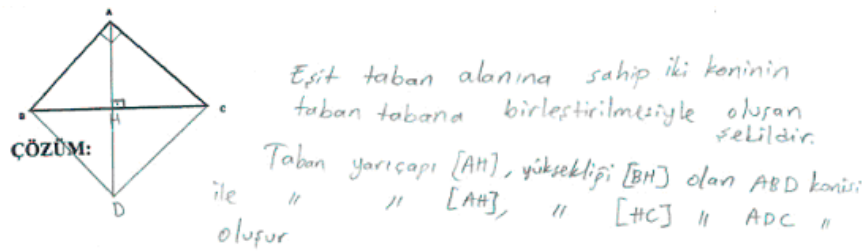 A
B
H
C
D
ÇÖZÜM:
Eşit taban alanına sahip iki koninin
taban tabana birleştirilmesiyle oluşan
şekildir.
Taban yarıçapı [AH], yüksekliği [BH] olan ABD konisi
ile " " [AH], " [HC] " ADC "
oluşur